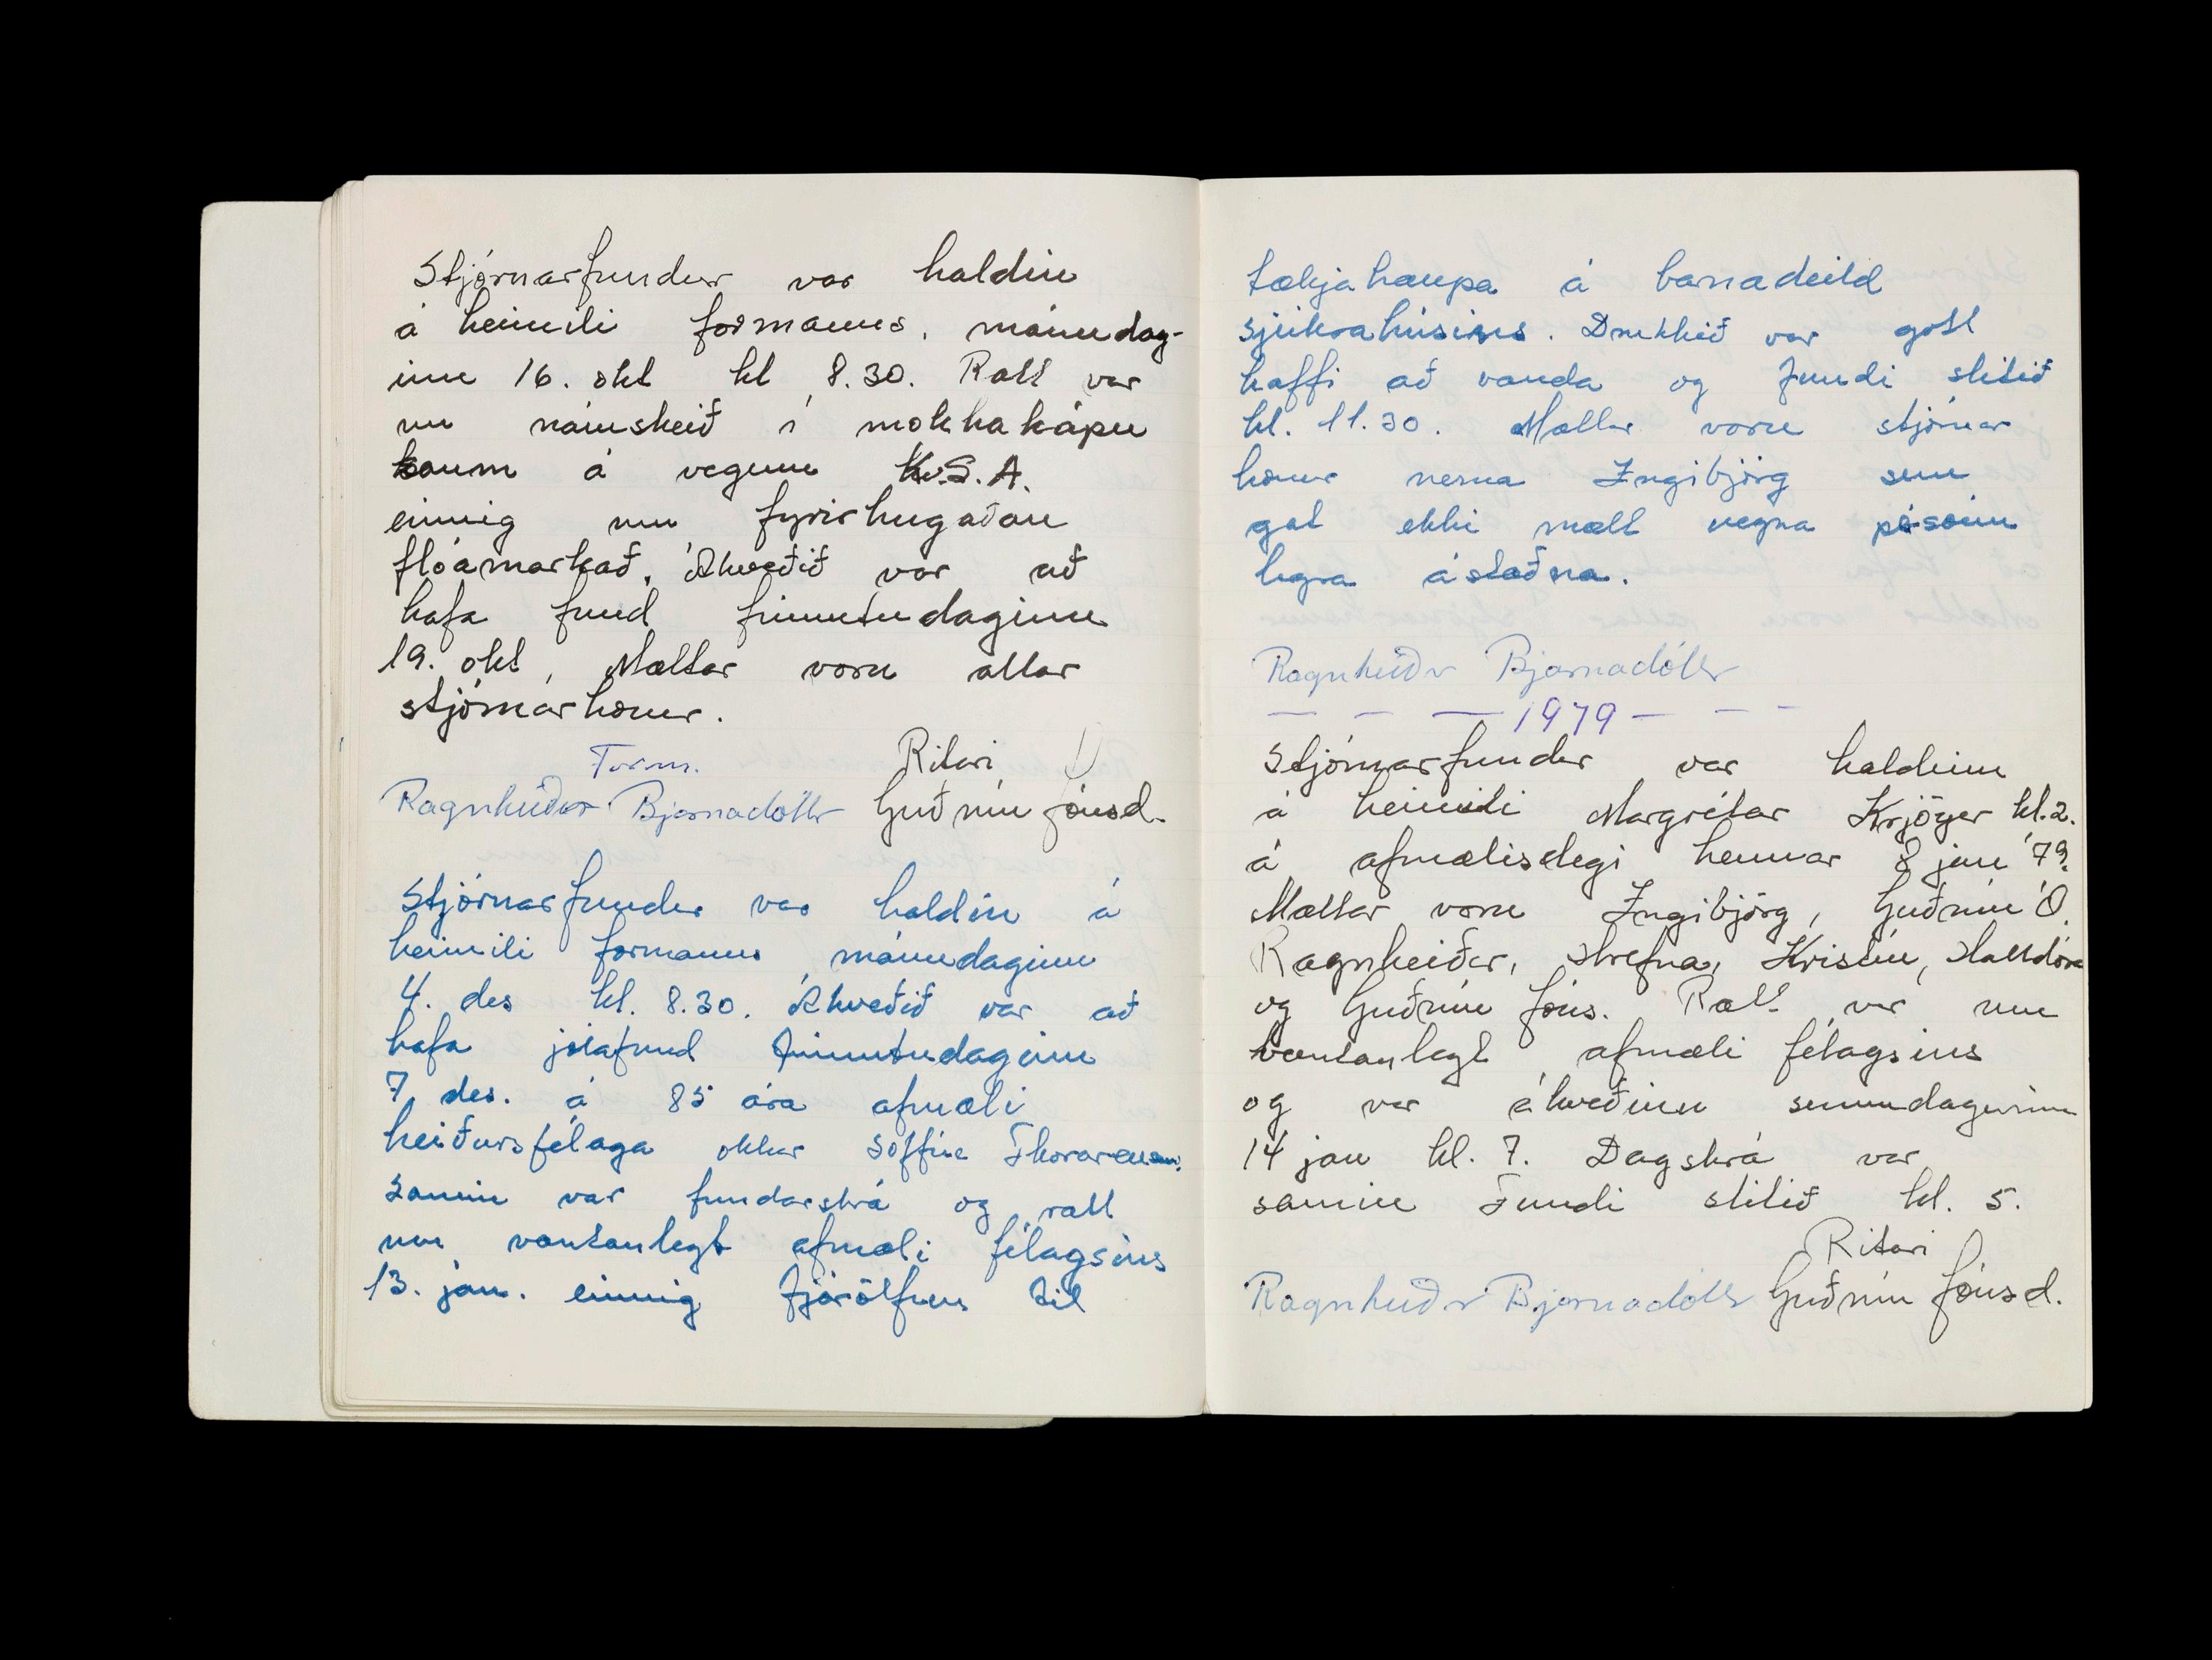 Stjórnarfundur var haldin
á heimili formanns, mánudag-
inn 16. okt kl 8.30. Rætt var
um námskeið í mokkakápu
saum á vegum Kv.S.A.
einnig um fyrirhugaðan
flóamarkað, Ákveðið var að
hafa fund fimmtudaginn
19. okt, Mættar voru allar
stjórnarkonur.
Form. Ritari
Ragnheiður Bjarnadóttir Guðrún Jónsd.
Stjórnarfundur var haldin á
heimili formanns mánudaginn
4. des kl. 8.30. Ákveðið var að
hafa jólafund fimmtudaginn
7 des. á 85 ára afmæli
heiðursfélaga okkar Soffíu Thorarensen.
Samin var fundarskrá og rætt
um væntanlegt afmæli félagsins
13. jan. einnig fjáröflun til
tækjakaupa á barnadeild
sjúkrahúsins. Drukkið var gott
kaffi að vanda og fundi slitið
kl. 11.30. Mættar voru stjórnar
konur nema Ingibjörg sem
gat ekki mætt vegna pésónu
legra ástæðna.
Ragnheiður Bjarnadóttir
— — — 1979 — — -
Stjórnarfundur var haldinn
á heimili Margrétar Kröyer kl.2.
á afmælisdegi hennar 8 jan '79.
Mættar voru Ingibjörg, Guðrún Ó.
Ragnheiður, Hrefna, Kristín, Halldóra
og Guðrún Jóns. Rætt var um
væntanlegt afmæli félagsins
og var ákveðinn sunnudagurinn
14 jan kl. 7. Dagskrá var
samin Fundi slitið kl. 5.
Ritari
Ragnheiður Bjarnadóttir Guðrún Jónsd.